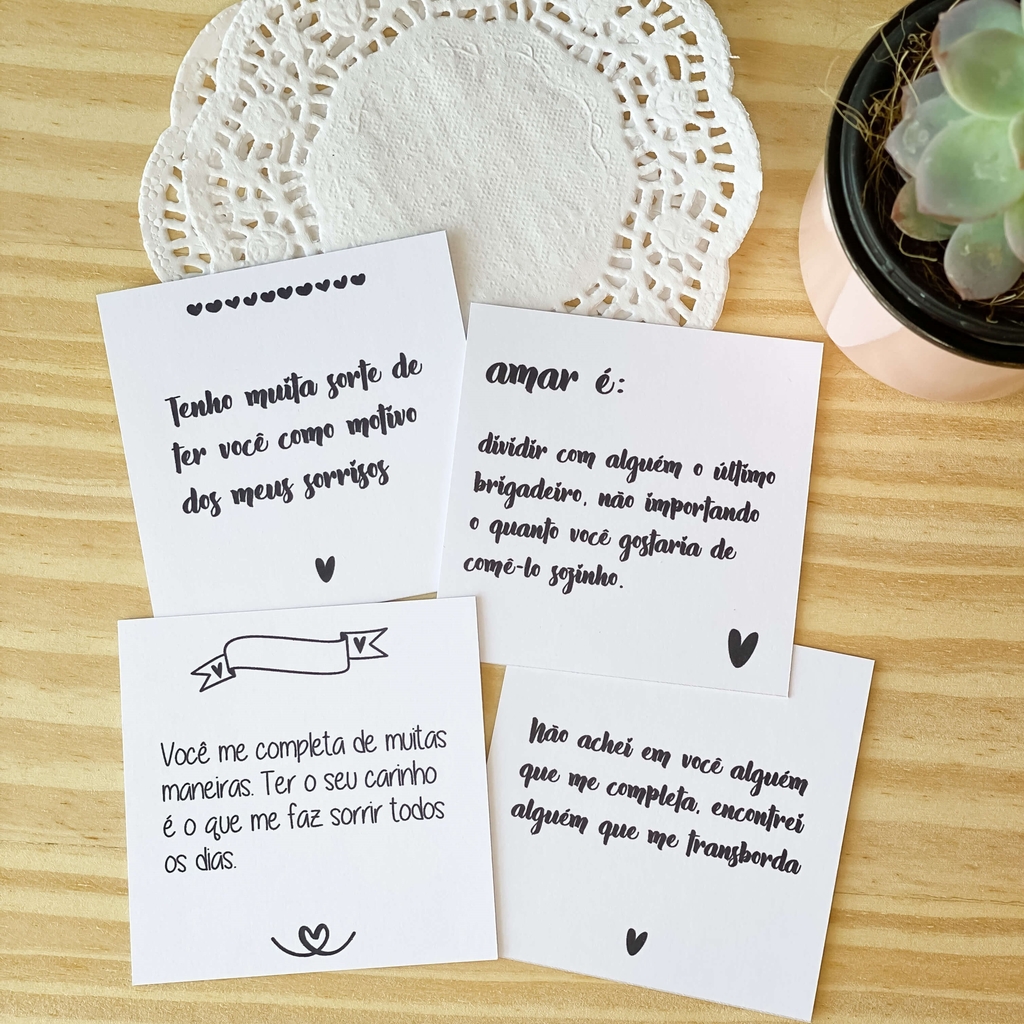 Tenho muita sorte de
ter você como motivo
dos meus sorrisos
amar é:
dividir com alguém o último
brigadeiro, não importando
o quanto você gostaria de
comê-lo sozinho.
Você me completa de muitas
maneiras. Ter o seu carinho
é o que me faz sorrir todos
os dias.
Não achei em você alguém
que me completa, encontrei
alguém que me transborda